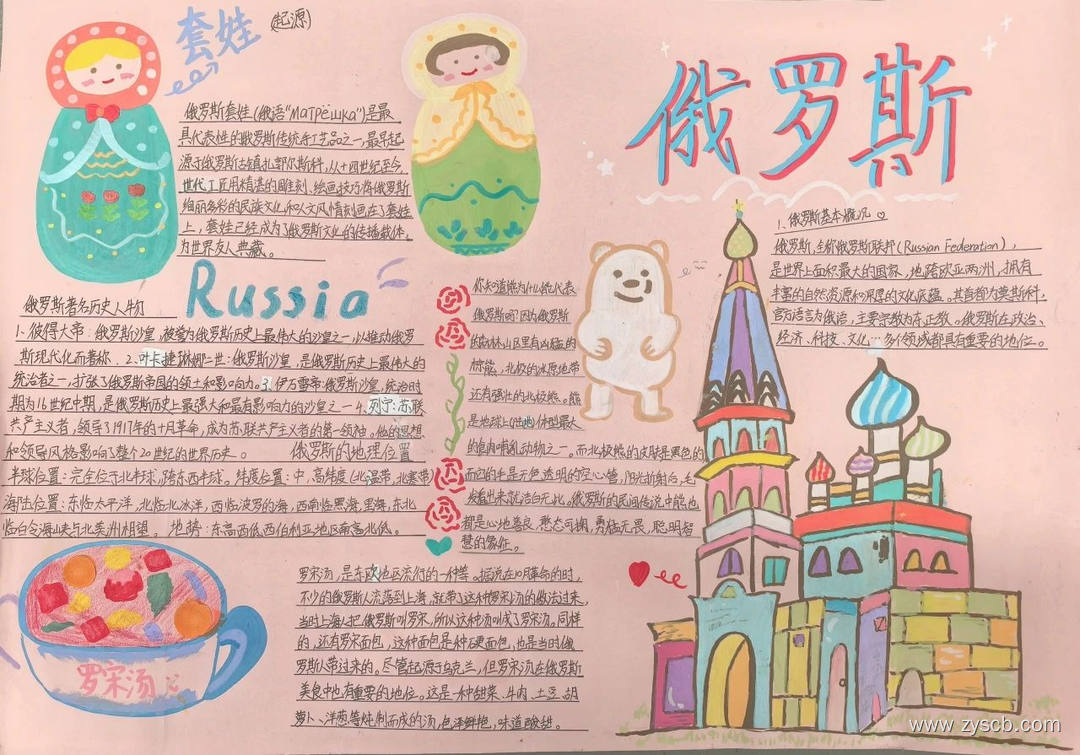 套娃
起源
俄罗斯套娃(俄语"Матрёшка")是最
具代表性的俄罗斯传统手工艺品之一,最早起
源于俄罗斯古镇扎郭尔斯科,从十四世纪至今,
世代工匠用精湛的雕刻、绘画技巧将俄罗斯
绚丽多彩的民族文化和人文风情刻画在了套娃
上,套娃已经成为了俄罗斯文化的传播载体,
为世界友人典藏。
俄罗斯
1、俄罗斯基本概况
俄罗斯,全称俄罗斯联邦(Russian Federation),
是世界上面积最大的国家,地跨欧亚两洲,拥有
丰富的自然资源和深厚的文化底蕴。其首都为莫斯科,
官方语言为俄语,主要宗教为东正教。俄罗斯在政治、
经济、科技、文化…多个领域都具有重要的地位。
Russia
俄罗斯著名历史人物
1、彼得大帝:俄罗斯沙皇,被誉为俄罗斯历史上最伟大的沙皇之一,以推动俄罗
斯现代化而著称、2、叶卡捷琳娜二世:俄罗斯沙皇,是俄罗斯历史上最伟大的
统治者之一,扩张了俄罗斯帝国的领土和影响力。3、伊万雷帝:俄罗斯沙皇,统治时
期为16世纪中期,是俄罗斯历史上最强大和最有影响力的沙皇之一4、列宁:苏联
共产主义者,领导了1917年的十月革命,成为苏联共产主义者的第一领袖。他的思想
和领导风格影响了整个20世纪的世界历史。
俄罗斯的地理位置
半球位置:完全位于北半球,跨东西半球。纬度位置:中、高纬度(北温带,北寒带)
海陆位置:东临太平洋,北临北冰洋,西临波罗的海,西南临黑海,里海,东北
临白令海峡与北美洲相望。 地势:东高西低,西伯利亚地区南高北低。
你知道熊为什么能代表
俄罗斯吗?因为俄罗斯
的森林山区里有凶猛的
棕熊,北极的冰原地带
还有强壮的北极熊。熊
是地球上(陆地)体型最大
的食肉哺乳动物之一。而北极熊的皮肤是黑色的
而它的毛是无色透明的空心管,阳光折射后,毛
发看出来就洁白无比。俄罗斯的民间传说中熊也
都是心地善良,憨态可掬,勇猛无畏,聪明智
慧的象征。
罗宋汤,是东欧地区流行的一种羹。据说在10月革命的时,
不少的俄罗斯人流落到上海,就带了这种罗宋汤的做法过来,
当时上海人把俄罗斯叫罗宋,所以这种汤叫成了罗宋汤。同样
的,还有罗宋面包,这种面包是种硬面包,也是当时俄
罗斯人带过来的。尽管起源于乌克兰,但罗宋汤在俄罗斯
美食中也有重要的地位。这是一种甜菜、牛肉、土豆、胡
萝卜、洋葱等炖制而成的汤,色泽鲜艳,味道酸甜。
罗宋汤
www.zyscb.com